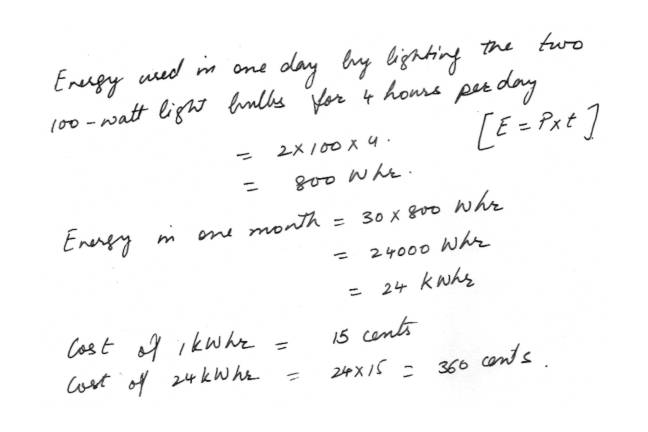 Energy used in one day by lighting the two
100-watt light bulbs for 4 hours per day
= 2 x 100 x 4. [E = P x t]
= 800 Whr.
Energy in one month = 30 x 800 Whr
= 24000 Whr
= 24 kWhr
Cost of 1 kWhr = 15 cents
Cost of 24 kWhr = 24 x 15 = 360 cents.